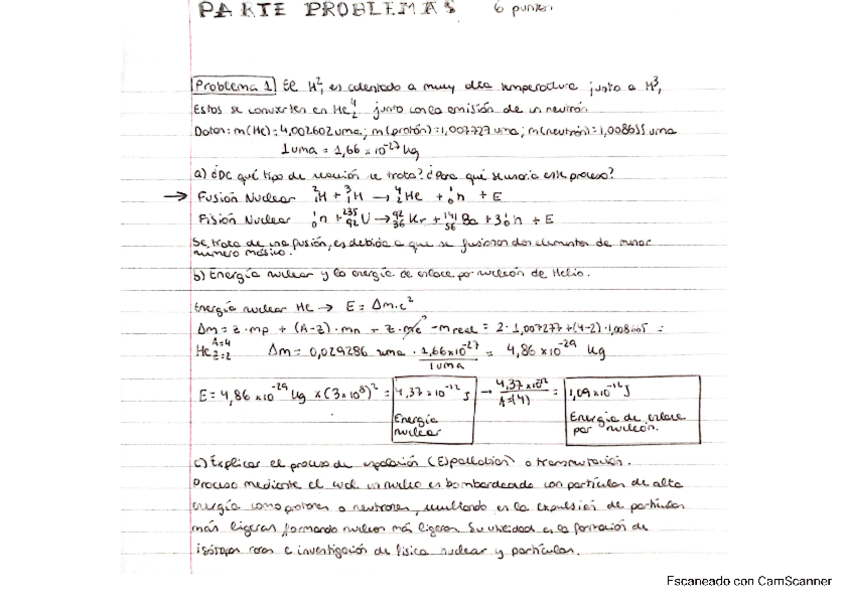 PARTE PROBLEMAS 6 puntos
Problema 1 El H²₁ es calentado a muy alta temperatura junto a H³₁
Estos se convierten en He⁴₂ junto con la emisión de un neutrón.
Datos: m(He): 4,002602 uma; m(protón): 1,007727 uma; m(neutrón): 1,008655 uma
1 uma = 1,66 × 10⁻²⁷ kg
a) ¿De qué tipo de reacción se trata? ¿Para qué se usaría este proceso?
→ Fusión Nuclear ²₁H + ³₁H → ⁴₂He + ¹₀n + E
Fisión Nuclear ¹₀n + ²³⁵₉₂U → ⁹²₃₆Kr + ¹⁴¹₅₆Ba + 3¹₀n + E
Se trata de una fusión, es debido a que se fusionan dos elementos de menor
número másico.
b) Energía nuclear y la energía de enlace por nucleón de Helio.
Energía nuclear He → E = Δm·c²
Δm = z·mp + (A-z)·mn + z·me - m real = 2·1,007277 + (4-2)·1,008665 =
He A=4 z=2 Δm = 0,029286 uma · 1,66×10⁻²⁷ / 1 uma = 4,86 ×10⁻²⁹ kg
E = 4,86 ×10⁻²⁹ kg × (3×10⁸)² = 4,37 ×10⁻¹² J → 4,37 ×10⁻¹² / A=(4) = 1,09 ×10⁻¹² J
Energía nuclear Energía de enlace por nucleón.
c) Explicar el proceso de espalación (Espallation) o transmutación.
Proceso mediante el cual un núcleo es bombardeado con partículas de alta
energía como protones o neutrones, resultando en la expulsión de partículas
más ligeras, formando núcleos más ligeros. Su utilidad es la formación de
isótopos raros e investigación de física nuclear y partículas.
Escaneado con CamScanner